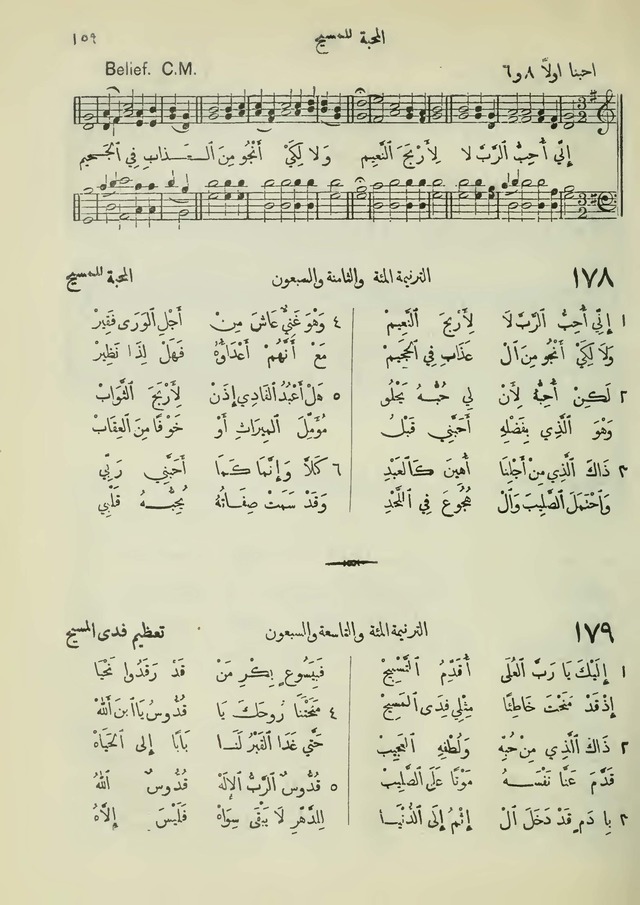 المحبة للمسيح ١٥٩
احبنا اولاً ٨ و٦ Belief. C.M.
إِنِّي أُحِبُّ الرَّبَّ لا لِأَرْبَحَ النَّعِيم وَلا لِكَيْ أَنْجُو مِنَ الْعَذابِ فِي الْجَحِيم
١٧٨ الترنيمة المئة والثامنة والسبعون المحبة للمسيح
١ إِنِّي أُحِبُّ الرَّبَّ لَا لِأَرْبَحَ النَّعِيمْ
وَلَا لِكَيْ أَنْجُو مِنَ الْ عَذَابِ فِي الْجَحِيمْ
٢ لَكِنْ أُحِبُّهُ لِأَنْ لِي حُبُّهُ يَحْلُو
وَهْوَ الَّذِي بِفَضْلِهِ أَحَبَّنِي قَبْلُ
٣ ذَاكَ الَّذِي مِنْ أَجْلِنَا أُهِينَ كَالعَبْدِ
وَاحْتَمَلَ الصَّلِيبَ وَالْ هُجُوعَ فِي اللَّحْدِ
٤ وَهْوَ غَنِيٌّ عَاشَ مِنْ أَجْلِ الْوَرَى فَقِيرْ
مَعْ أَنَّهُمْ أَعْدَاؤُهُ فَهَلْ لِذَا نَظِيرْ
٥ هَلْ أَعْبُدُ الْفَادِي إِذَنْ لِأَرْبَحَ الثَّوَابْ
مُؤَمِّلَ الْمِيرَاثِ أَوْ خَوْفًا مِنَ الْعِقَابْ
٦ كَلَّا وَإِنَّمَا كَمَا أَحَبَّنِي رَبِّي
وَقَدْ سَمَتْ صِفَاتُهُ يُحِبُّهُ قَلْبِي
١٧٩ الترنيمة المئة والتاسعة والسبعون تعظيم فدى المسيح
١ إِلَيْكَ يَا رَبَّ الْعُلَى أُقَدِّمُ التَّسْبِيحْ
إِذْ قَدْ مَنَحْتَ خَاطِئًا مِثْلِي فِدَى الْمَسِيحْ
٢ ذَاكَ الَّذِي مِنْ حُبِّهِ وَلُطْفِهِ الْعَجِيبْ
قَدَّمَ عَنَّا نَفْسَهُ مَوْتًا عَلَى الصَّلِيبْ
٣ بِآدَمٍ قَدْ دَخَلَ الْ إِثْمُ إِلَى الدُّنْيَا
فَبِيَسُوعٍ بِكْرِ مَنْ قَدْ رَقَدُوا نَحْيَا
٤ مَنَحْتَنَا رُوحَكَ يَا قُدُّوسُ يَا ابْنَ اللهْ
حَتَّى غَدَا الْقَبْرُ لَنَا بَابًا إِلَى الْحَيَاهْ
٥ قُدُّوسٌ الرَّبُّ الْإِلَهْ قُدُّوسٌ اللهُ
لِلدَّهْرِ لَا يَبْقَى سِوَاهْ فَلَيْسَ إِلَّاهُ